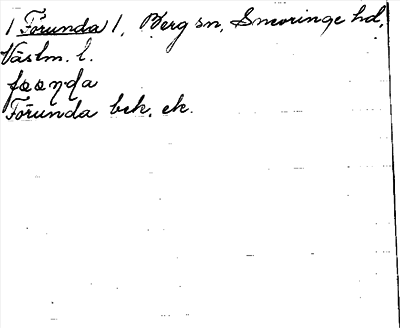 / Förunda /, Berg sn, Snevringe hd,
Västm. l.
Förunda bek. ek.